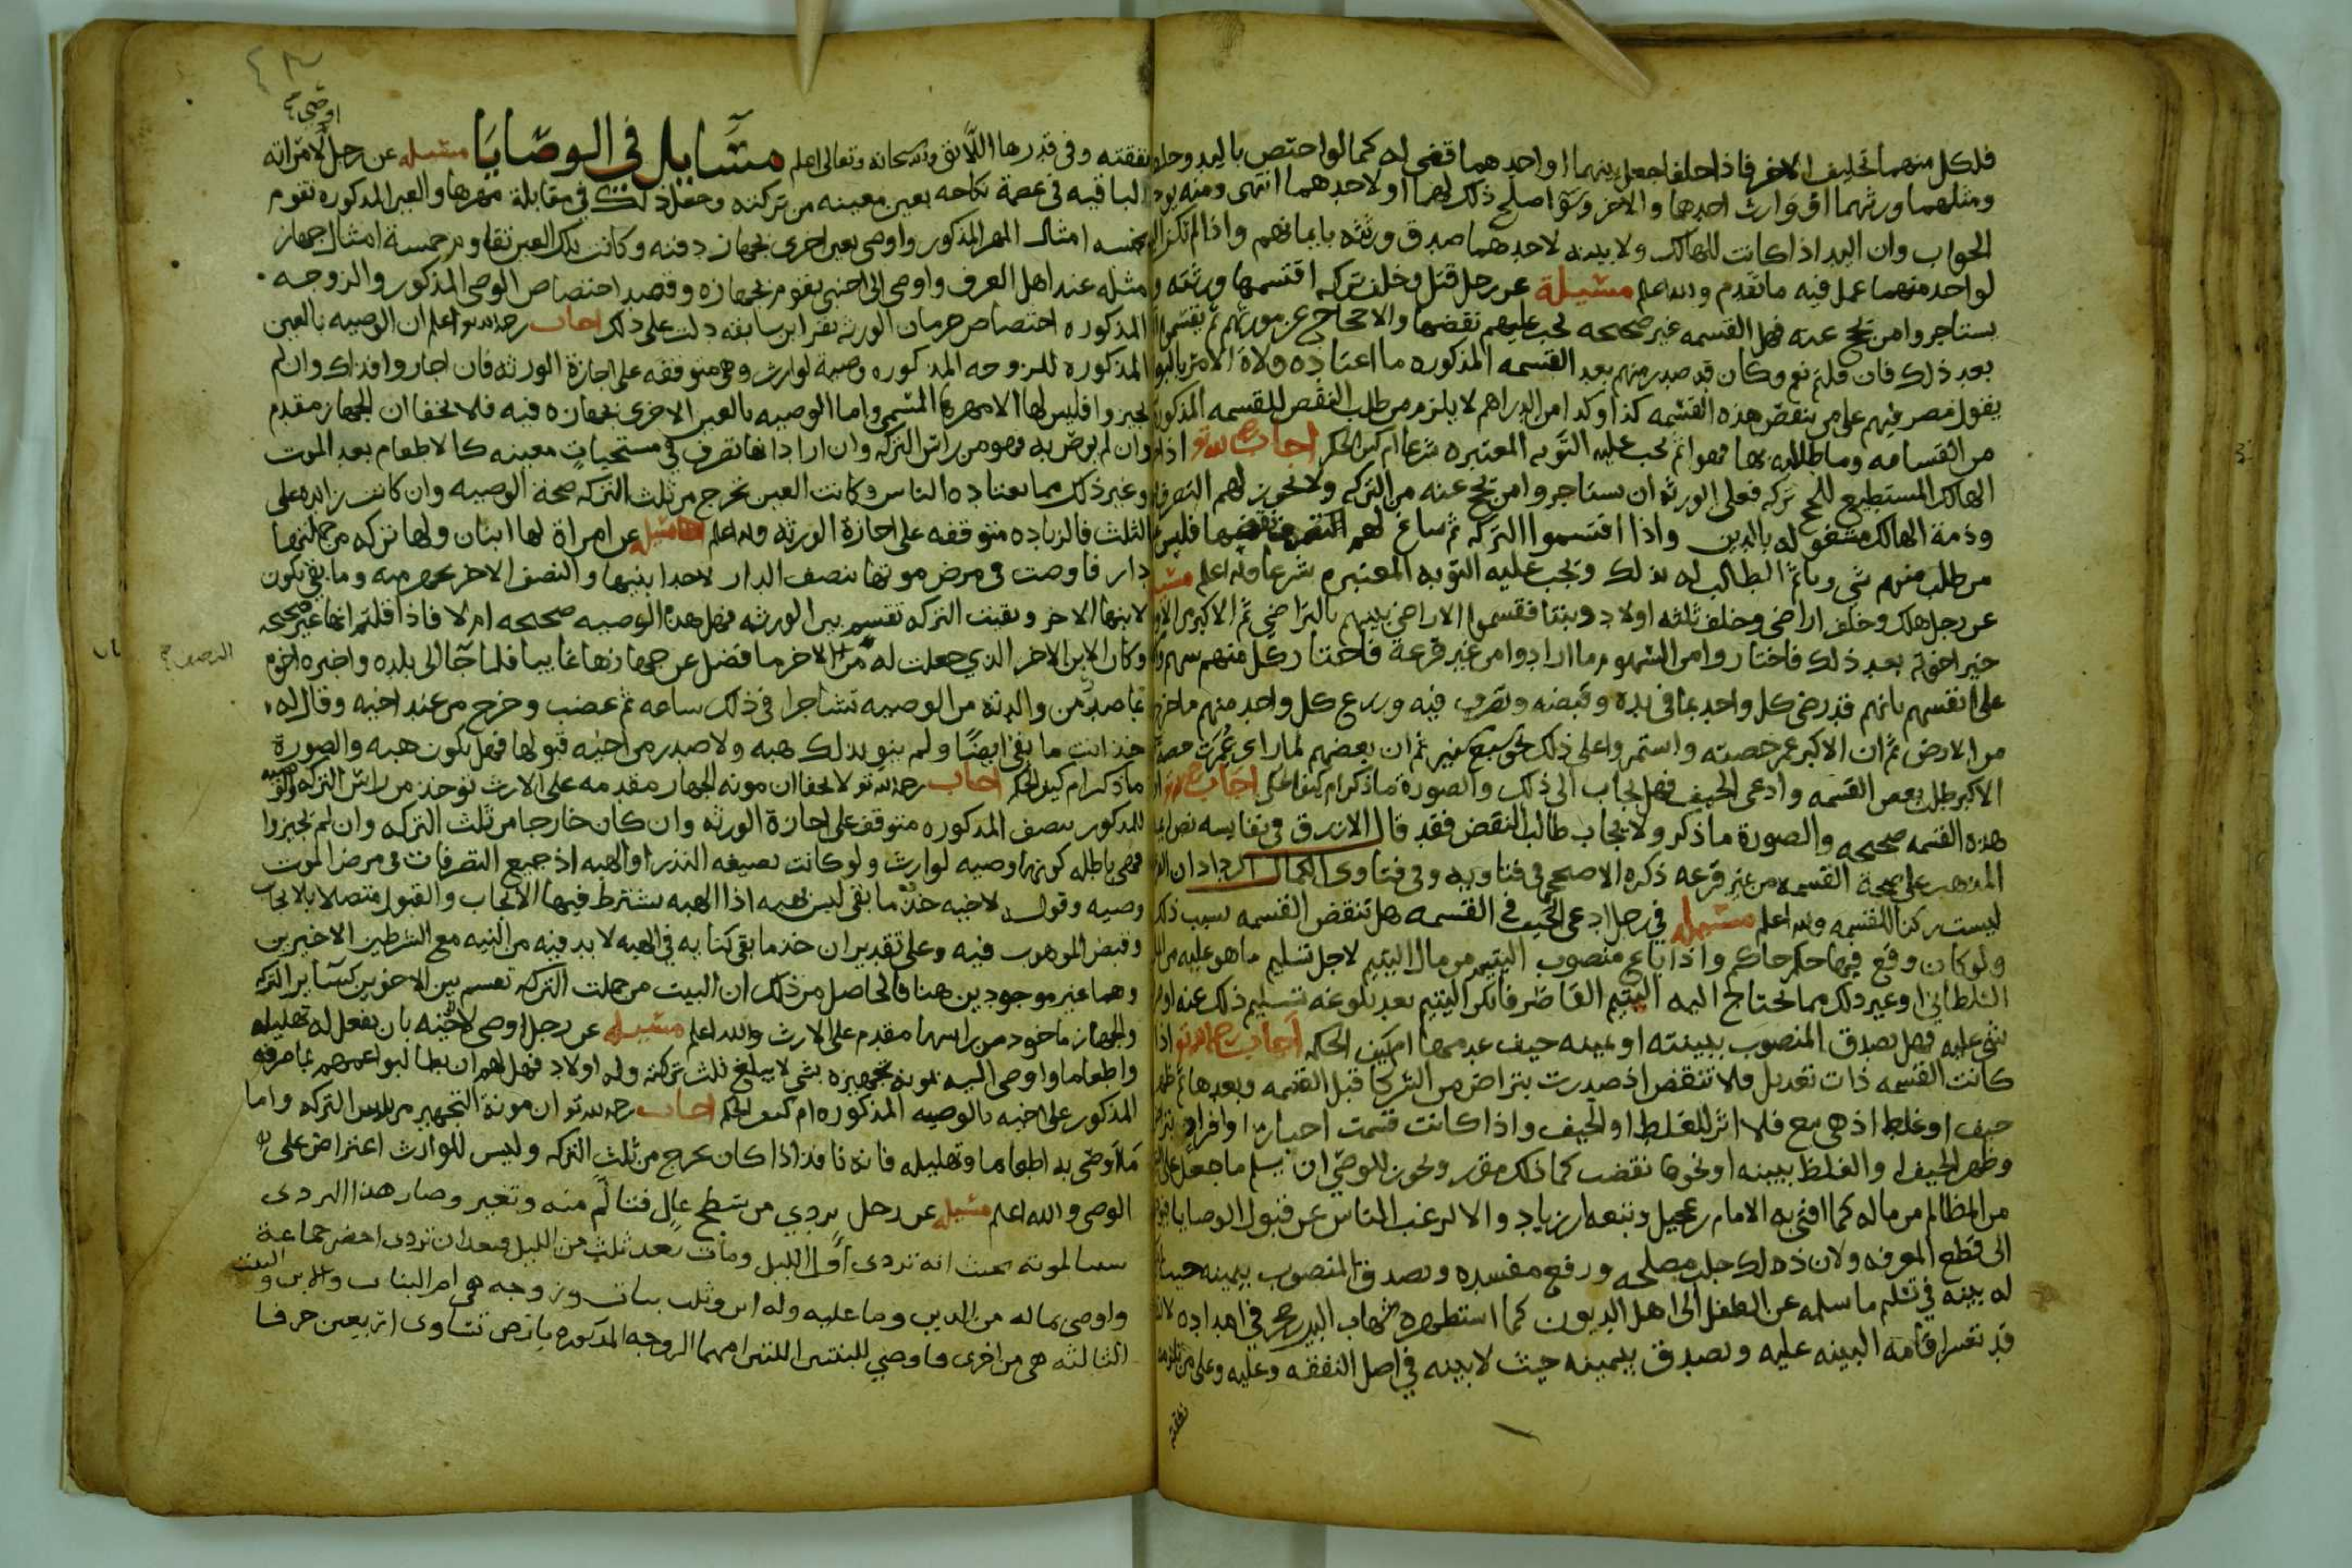 فلكل منهما تحليف الاخر فاذا حلفا جعل بينهما او احدهما قضي له كما لو اختص باليد وحلف
ومثلهما ورثتهما او وارث احدهما والاخر وسوا اصلح ذلك لهما او لاحدهما انتهى ومنه يوخذ
الجواب وان اليد اذا كانت للهالك ولا بينه لاحدهما صدق ورثته بايمانهم واذا لم تكن اليد
لواحد منهما عمل فيه ما تقدم والله اعلم مسئلة عن رجل قتل وخلف تركه اقتسمها ورثته
يستاجروا من يحج عنه فهل القسمه غير صحيحه يجب عليهم نقضها والاحجاج عن مورثهم ثم يقتسموا
بعد ذلك فان قلتم نعم وكان قد صدر منهم بعد القسمه المذكوره ما اعتاده ولاة الامر
يقول مصر فيهم على من ينقض هذه القسمه كذا وكذا من الدراهم لا يلزم من طلب النقض للقسمه المذكوره
من القسامه وما طلاليه بها فهو اثم يجب عليه التوبه المعتبره شرعا ام كيف الحكم اجاب رحمه الله تعالى اذا
الهالك المستطيع للحج تركه فعلى الورثه ان يستاجروا من يحج عنه من التركه ولا يجوز لهم التصرف
وذمة الهالك مشغوله بالدين واذا اقتسموا التركه ثم ساغ لهم نقضها فليس
من طلب منهم شي وياثم الطالب له بذلك ويجب عليه التوبه المعتبره شرعا والله اعلم مسئله
عن رجل هلك وخلف اراضي وخلف ثلثه اولاد وبنتا فقسموا الاراضي بينهم بالتراضي ثم الاكبر من الاولاد
خير اخوته بعد ذلك فاختاروا من السهوم ما ارادوا من غير قرعة فاختار كل منهم سهم
على انفسهم بانهم قد رضي كل واحد بما في يده وقبضه وتصرف فيه وزرع كل واحد منهم ما خرج
من الارض ثم ان الاكبر عمر حصته واستمروا على ذلك نحو سبع سنين ثم ان بعضهم لما راى عُمرت حصة
الاكبر طلب بعض القسمه وادعى الحيف فهل يجاب الى ذلك والصورة ما ذكر ام كيف الحكم اجاب
هذه القسمه صحيحه والصورة ما ذكر ولا يجاب طالب النقض فقد قال الازرق في نفايسه نص
المذهب على صحة القسمه من غير قرعه ذكره الاصبحي في فتاويه وفي فتاوى الكمال الرداد ان
ليست ركنا للقسمه والله اعلم مسئله في رجل ادعى الحيف في القسمه هل تنقض القسمه بسبب ذلك
ولو كان وقع فيها حكم حاكم واذا باع منصوب اليتيم من مال اليتيم لاجل تسليم ما هو عليه من
السلطاني او غير ذلك مما يحتاج اليه اليتيم القاصر فانكر اليتيم بعد بلوغه تسليم ذلك عنه
شي عليه فهل يصدق المنصوب ببينته او يمينه حيف عدمها ام كيف الحكم اجاب رحمه الله تعالى اذا
كانت القسمه ذات تعديل فلا تنقض اذ صدرت بتراض من الشركا قبل القسمه وبعدها ثم ظهر
حيف او غلط اذ هي بيع فلا اثر للغلط او الحيف واذا كانت قسمت اجبار او افراز
وظهر الحيف او الغلط ببينه او نحوها نقضت كما ذلك مقرر ويجوز للوصي ان يسلم ما جعل على
من المظالم من ماله كما افتى به الامام بن عجيل وتبعه ابن زياد والا لرغب الناس عن قبول الوصايا
الى قطع المعرفه ولان ذلك جلب مصلحه ورفع مفسده ويصدق المنصوب بيمينه حيث
له بينه في تسلم ما سلمه عن الطفل الى اهل الديون كما استظهره شهاب الدين بن حجر في امداده
قد تعسر اقامة البينه عليه ويصدق بيمينه حيث لا بينه في اصل النفقه وعليه وعلى من
نفقته
نفقته وفي قدرها اللائق والله سبحانه وتعالى اعلم مسايل في الوصايا مسئله عن رجل لامراته
اوصى
الباقيه في عصمة نكاحه بعين معينه من تركته وجعل ذلك في مقابلة مهرها والعين المذكوره تقوم
بخمسه امثال المهر المذكور واوصى بعين اخرى بجهاز دفنه وكانت تلك العين تقاوم خمسة امثال جهاز
مثله عند اهل العرف واوصى الى اجنبي يقوم بجهازه وقصد اختصاص الوصي المذكور والزوجه
المذكوره اختصاص حرمان الورثه بقراين سابقه دلت على ذلك اجاب رحمه الله تعالى اعلم ان الوصيه بالعين
المذكوره للزوجه المذكوره وصية لوارث وهي متوقفه على اجازة الورثه فان اجازوا فذاك وان لم
يجيزوا فليس لها الا مهرها المسمى واما الوصيه بالعين الاخرى بجهازه فيه فلا يخفا ان الجهاز مقدم
وان لم يوص به فهو من راس التركه وان اراد انها تصرف في مستحبات معينه كالاطعام بعد الموت
وغير ذلك مما يعتاده الناس وكانت العين تخرج من ثلث التركه صحة الوصيه وان كانت زايده على
الثلث فالزياده متوقفه على اجازة الورثه والله اعلم مسئله عن امراة لها ابنان ولها تركه من جملتها
دار فاوصت في مرض موتها بنصف الدار لاحد ابنيها والنصف الاخر يجهز منه وما بقي يكون
لابنها الاخر وبقيت التركه تقسم بين الورثه فهل هذه الوصيه صحيحه ام لا فاذا قلتم انها غير صحيحه
وكان الابن الاخر الذي جعلت له من الاخر ما فضل عن جهازها غايبا فلما جا الى بلده واخبره اخوه
النصف
بما صدر من والدته من الوصيه تشاجرا في ذلك ساعه ثم غضب وخرج من عند اخيه وقال له
خذ انت ما بقي ايضا ولم ينو بذلك هبه ولا صدر من اخيه قبولها فهل يكون هبه والصورة
ما ذكر ام كيف الحكم اجاب رحمه الله تعالى لا يخفا ان مونه الجهاز مقدمه على الارث توخذ من راس التركه والوصيه
للمذكور بنصف المذكوره متوقف على اجازة الورثه وان كان خارجا من ثلث التركه وان لم يجيزوا
فهي باطله كونها وصيه لوارث ولو كانت بصيغه النذر او الهبه اذ جميع التصرفات في مرض الموت
وصيه وقوله لاخيه خذ ما بقي ليس بهبه اذا الهبه يشترط فيها الايجاب والقبول متصلا بالايجاب
وقبض الموهوب فيه وعلى تقدير ان خذ ما بقي كنايه في الهبه لا بد فيه من النيه مع الشرطين الاخيرين
وهما غير موجودين هنا فالحاصل من ذلك ان البيت من جملت التركه تقسم بين الاخوين كساير التركه
والجهاز ماخوذ من راسها مقدم على الارث والله اعلم مسئله عن رجل اوصى لاخيه بان يفعل له تهليله
واطعاما واوصى اليه بمونة تجهيزه بشي لا يبلغ ثلث تركته وله اولاد فهل لهم ان يطالبوا عمهم بما صرفه
المذكور على اخيه بالوصيه المذكوره ام كيف الحكم اجاب رحمه الله تعالى ان مونة التجهيز من راس التركه واما
ما اوصى به اطعاما وتهليله فانه نافذ اذا كان يخرج من ثلث التركه وليس للوارث اعتراض على
الوصي والله اعلم مسئله عن رجل يردي من سطح عال فتالم منه وتغير وصار هذا الردى
سببا لموته بحيث انه تردى اول الليل ومات بعد ثلث من الليل وبعد ان تردى احضر جماعة
واوصى بماله من الدين وما عليه وله ابن وثلث بنات وزوجه هي ام البنات والابن والبنت
الثالثه هي من اخرى فاوصي للبنتين اللتين امهما الزوجه المذكوره بارض تساوى اربعين حرفا